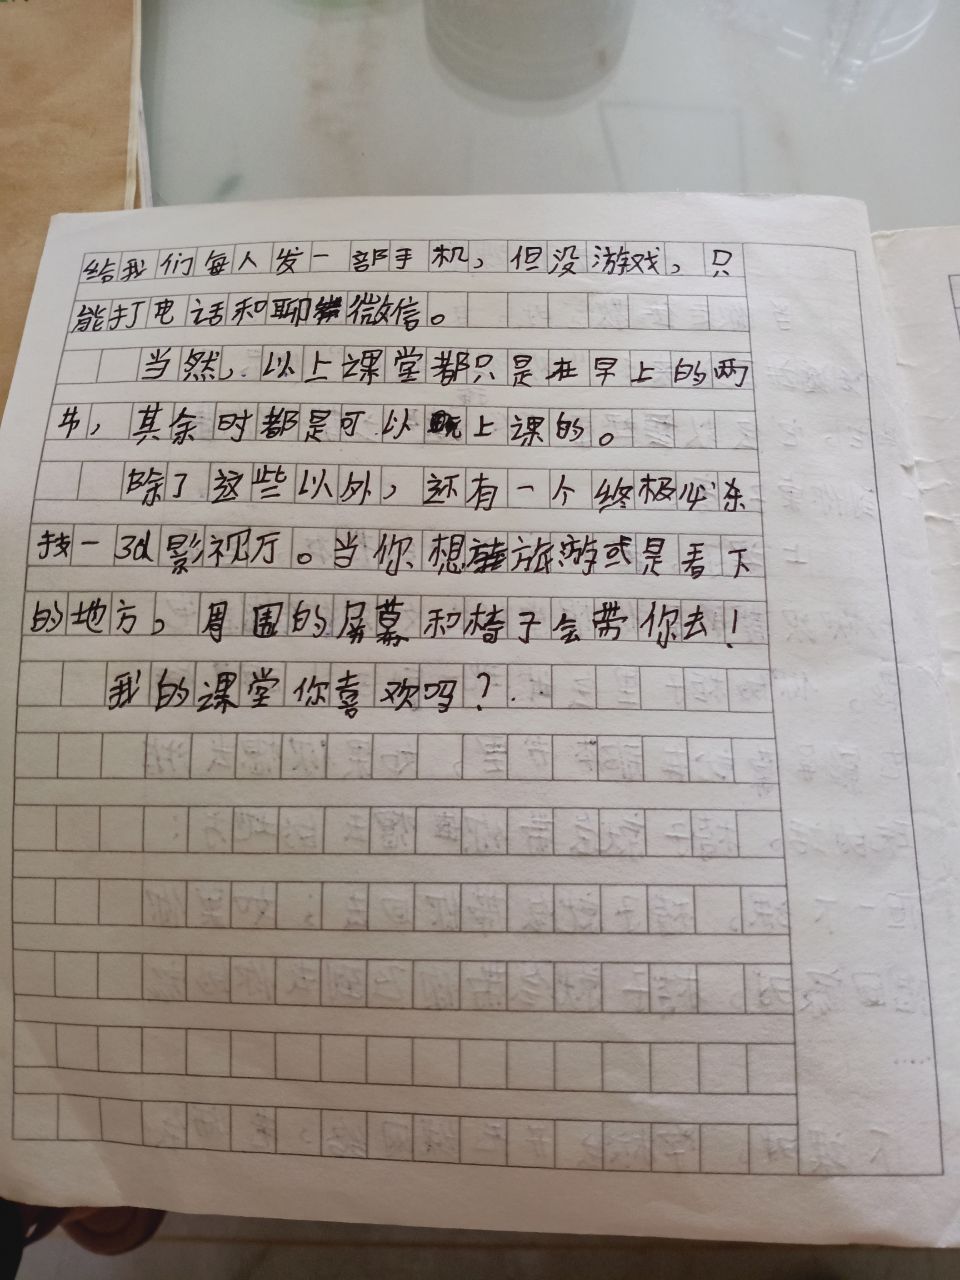 给我们每人发一部手机，但没游戏，只
能打电话和聊微信。
当然，以上课堂都只是在早上的两
节，其余时都是可以上课的。
除了这些以外，还有一个终极必杀
技一3d影视厅。当你想旅游或是看下
的地方，周围的屏幕和椅子会带你去！
我的课堂你喜欢吗？